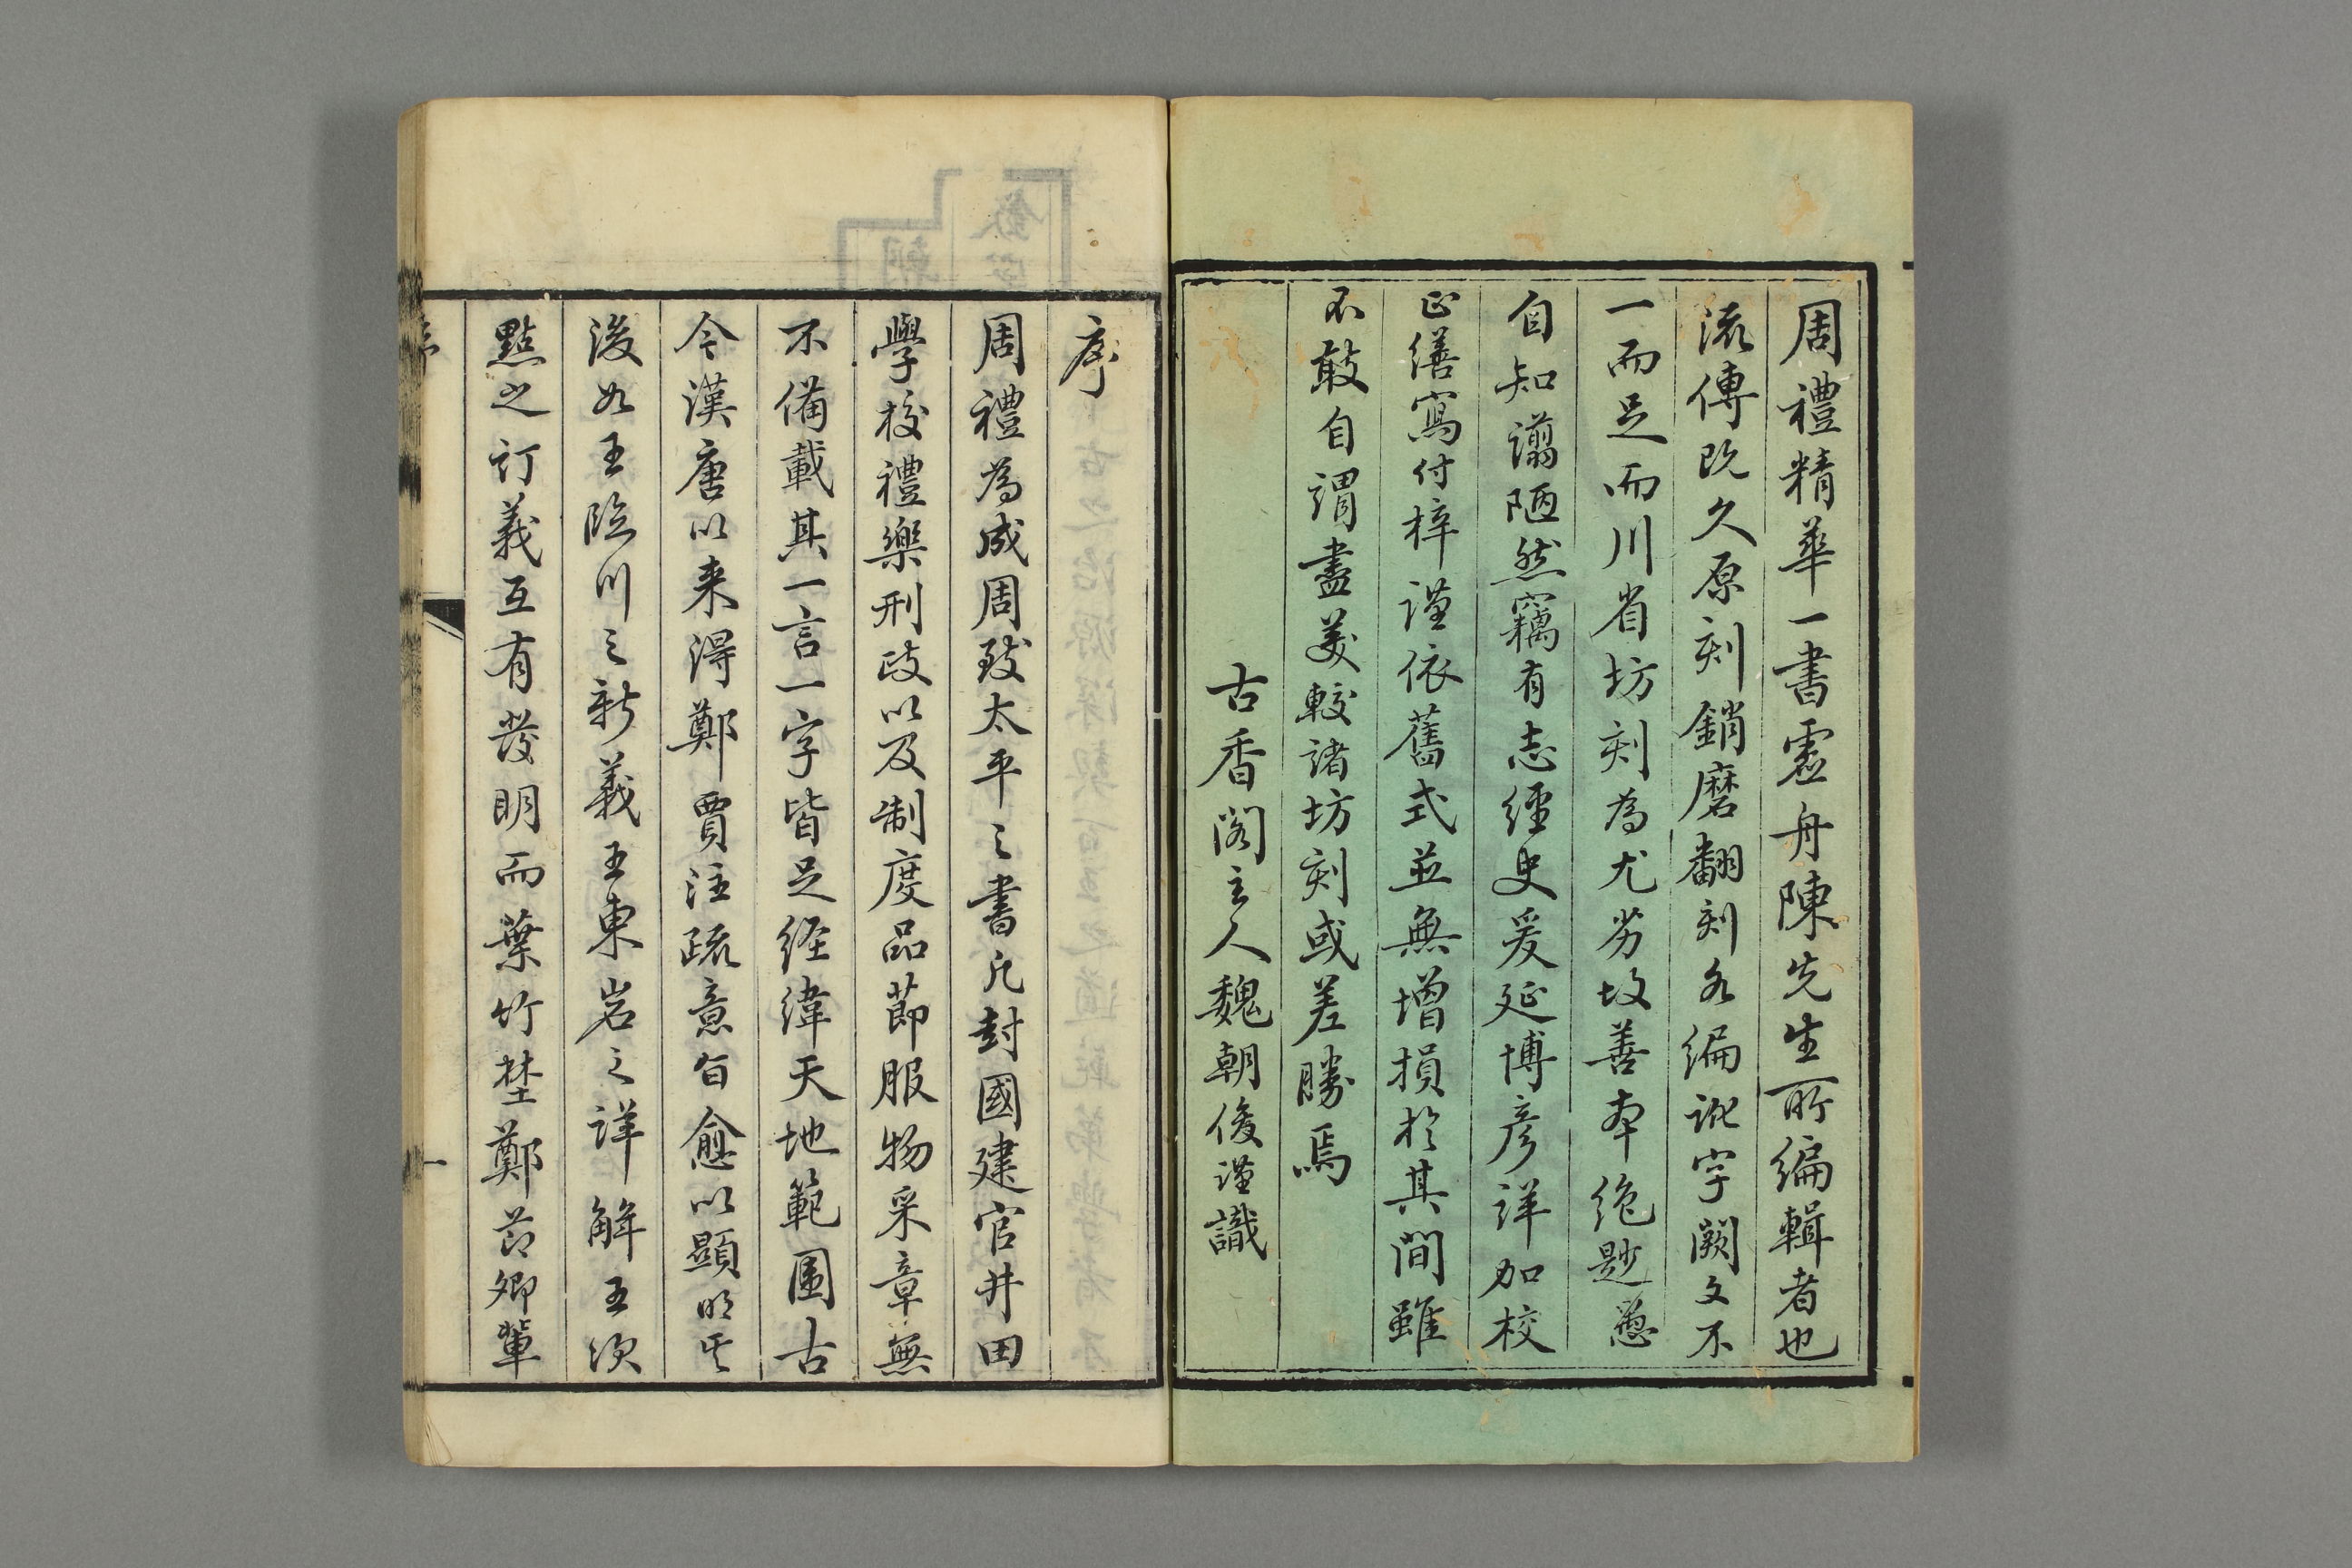 周禮精華一書虛舟陳先生所編輯者也
流傳既久原刻銷磨翻刻各編訛字闕文不
一而足而川省坊刻為尤劣故善本絶尠愚
自知謭陋然竊有志經史爰延博彥詳加校
正繕寫付梓謹依舊式並無增損於其間雖
不敢自謂盡美較諸坊刻或差勝焉
古香閣主人魏朝俊謹識
序
周禮為成周致太平之書凡封國建官井田
學校禮樂刑政以及制度品節服物采章無
不備載其一言一字皆足経緯天地範圍古
今漢唐以来得鄭賈注疏意旨愈以顯明其
後如王臨川之新義王東岩之詳解王次
點之訂義互有發明而葉竹埜鄭莭卿輩